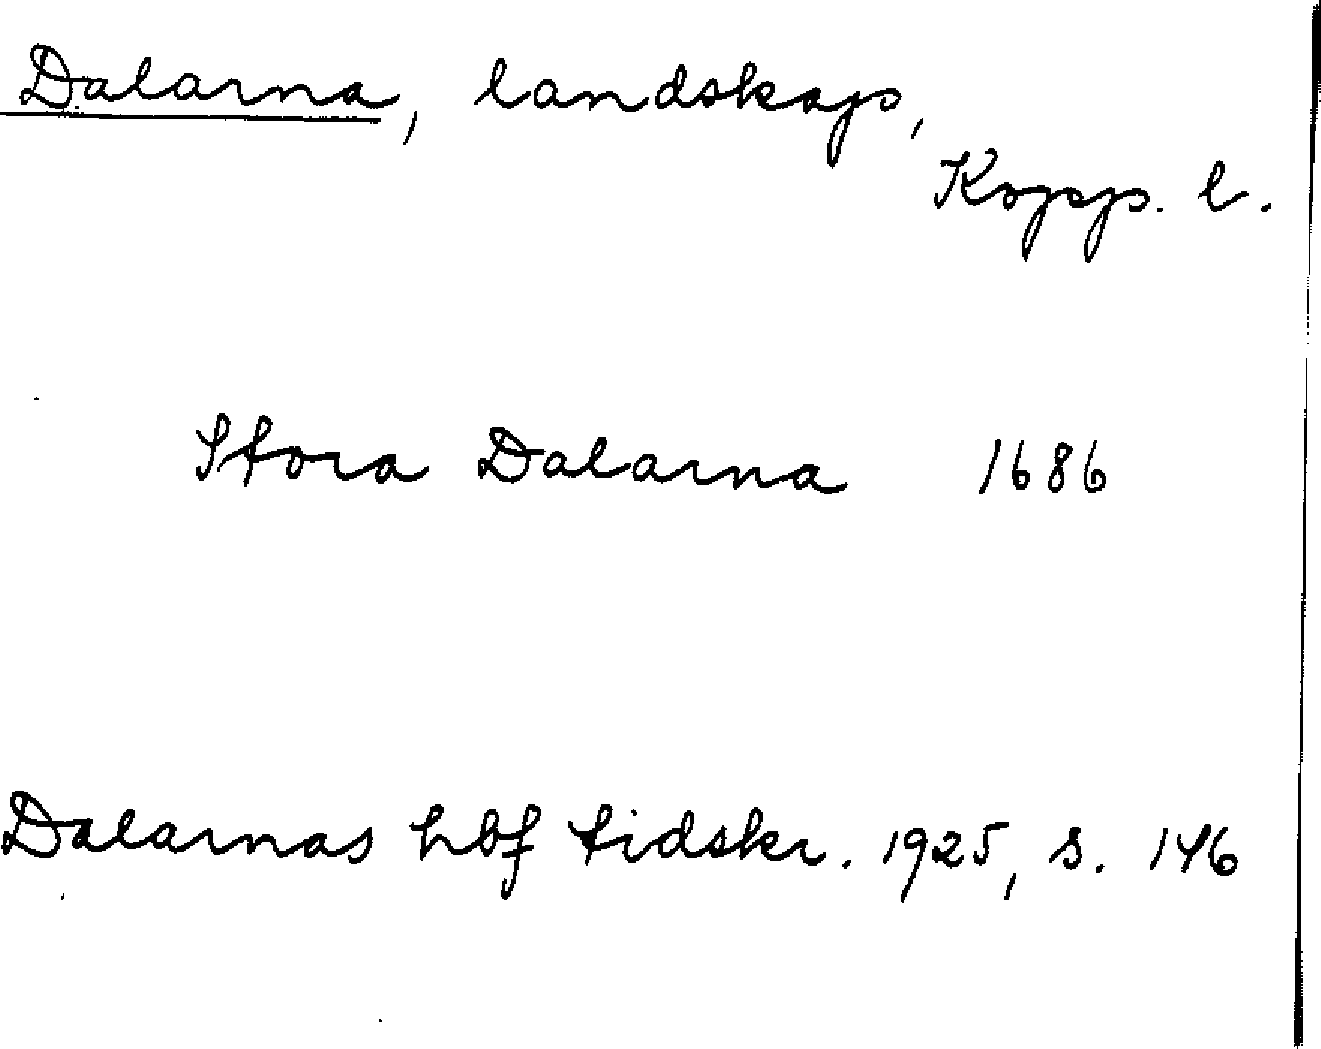 Dalarna, landskap,
Kopp. l.
Stora Dalarna 1686
Dalarnas hbf tidskr. 1925, s. 146